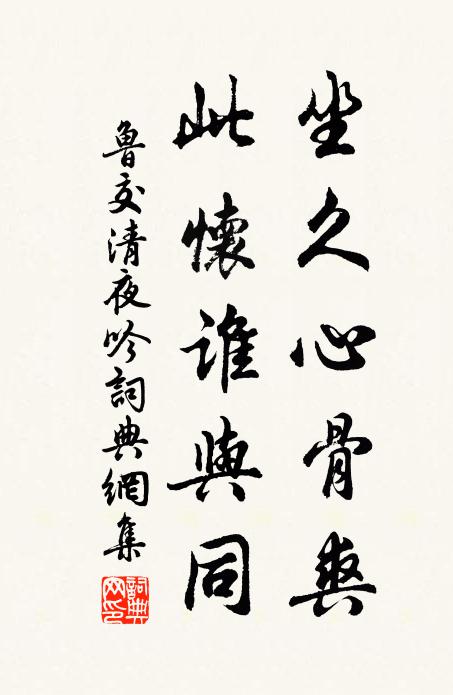 坐久心骨爽
此懷誰與同
魯交清夜吟詞典網集
詞典網印